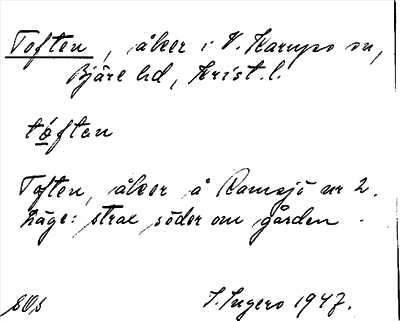 Toften, åker i V. Karups sn,
Bjäre hd, Krist. l.
tóften
Toften, åker å Ramsjö nr 2.
Läge: strax söder om gården.
SOs
S. Ingers 1947.